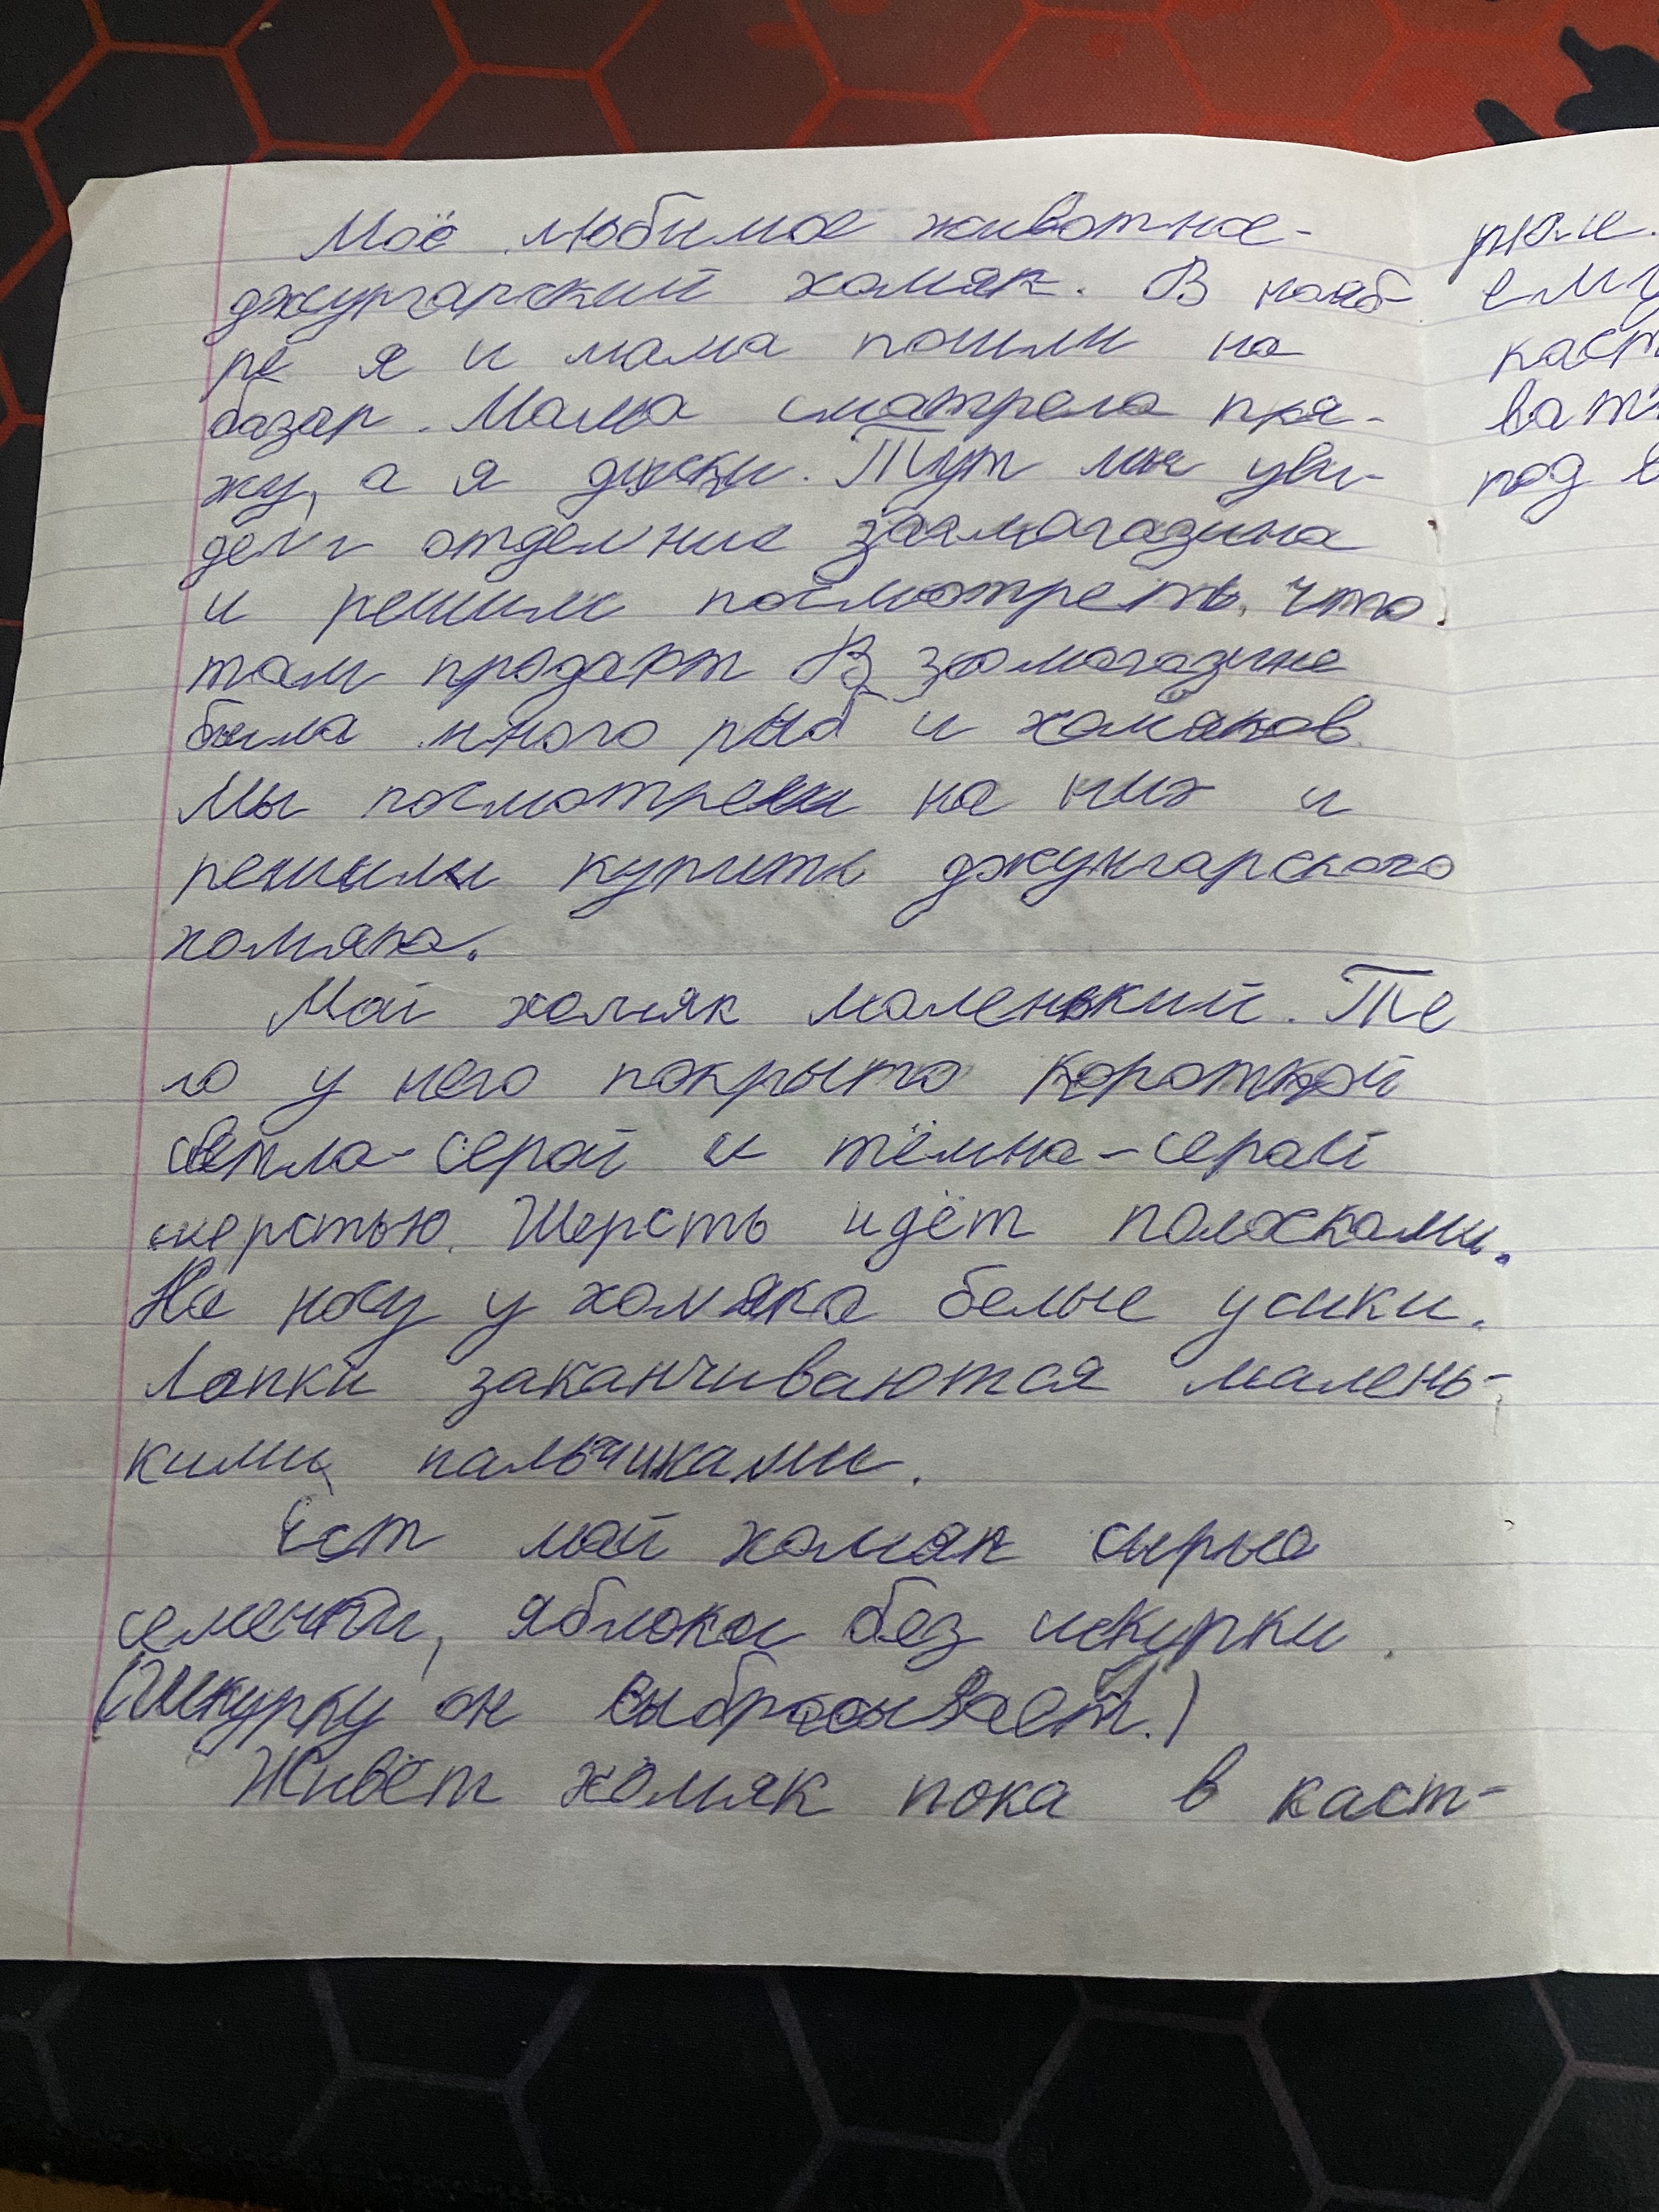 Моё любимое животное-
джургарский хомяк. В нояб
ре я и мама пошли на
базар. Мама смотрела пря-
жу, а я диски. Тут мы уви-
дели отделние зоомагазина
и решили посмотреть, что
там продают В зоомагазине
была много рыб и хомяков.
Мы посмотрели на них и
решили купить джунгарского
хомяка.
Мой хомяк маленький. Те
ло у него покрыто короткой
светла-серой и тёмна-серай
шерстью. Шерсть идёт полосками.
На носу у хомяка белые усики.
Лапки заканчиваются малень-
кими пальчиками.
Ест мой хомяк сырые
семечки, яблоки без шкурки.
(Шкурку он выбрасывает.)
Живёт хомяк пока в каст-
рюле.
ему
каст
вать
под в